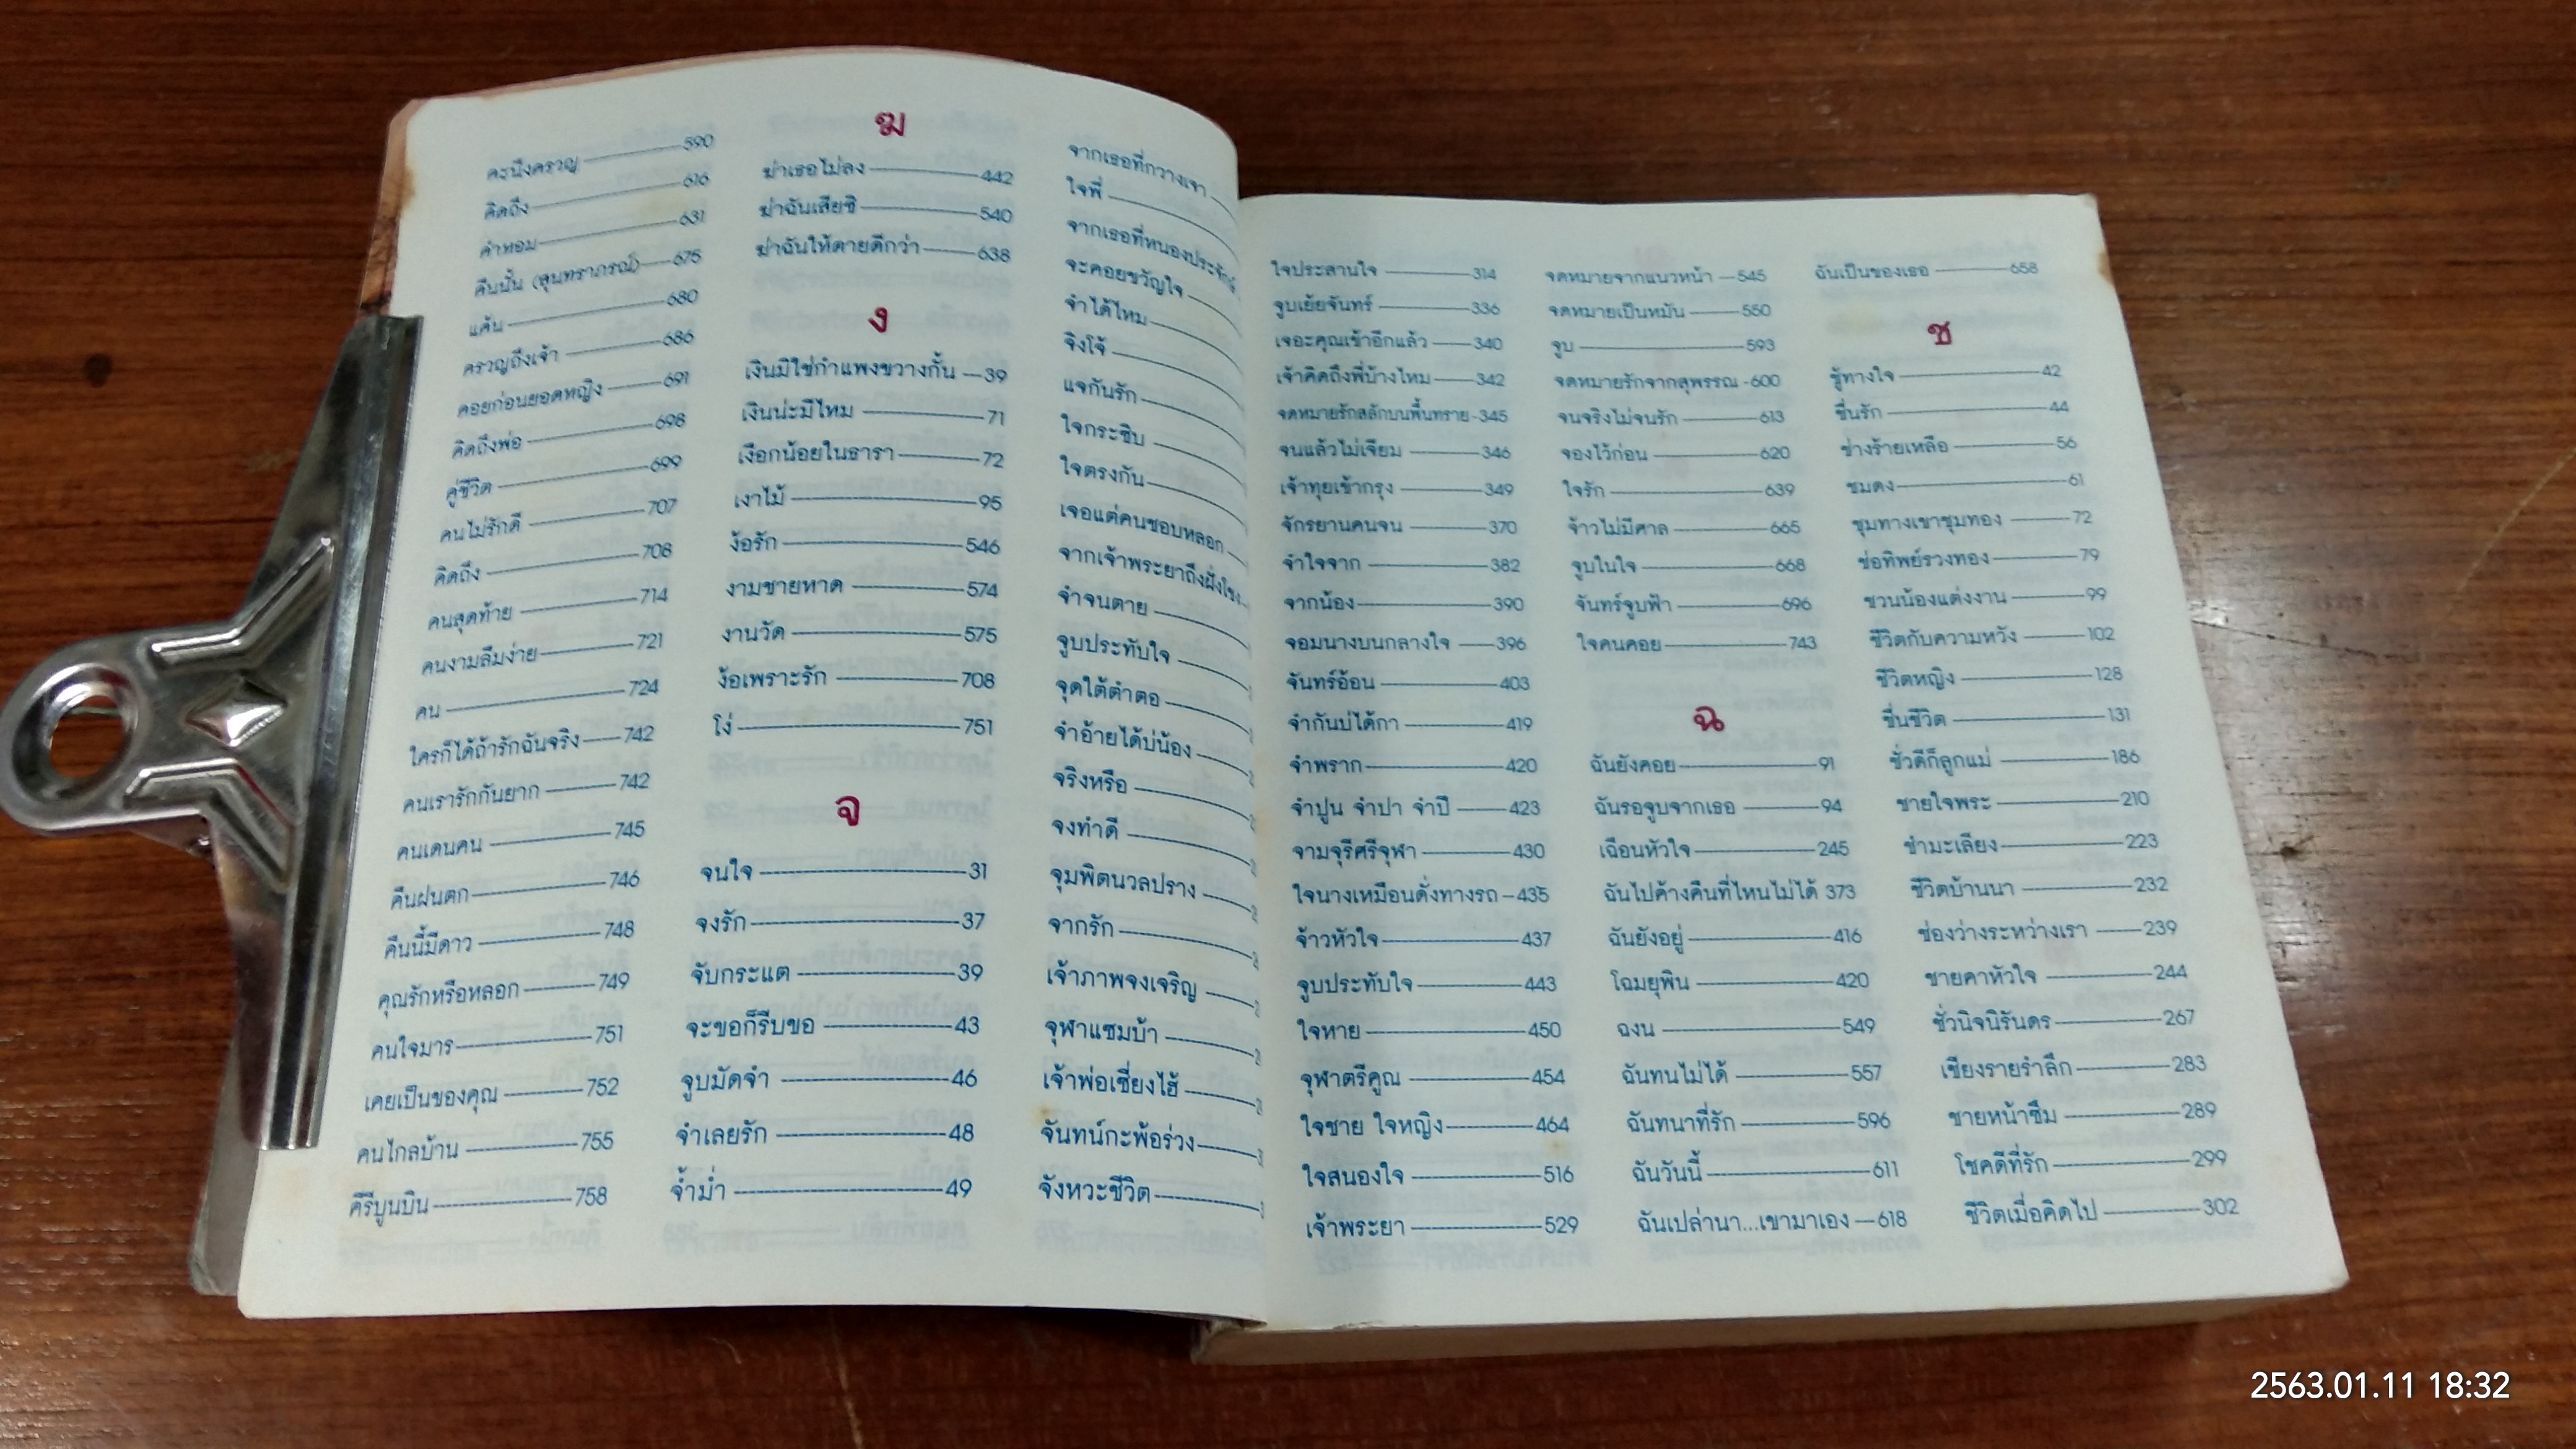 คะนึงครวญ 590
คิดถึง 616
คำหอม 631
คืนนั้น (สุนทราภรณ์) 675
แค้น 680
ครวญถึงเจ้า 686
คอยก่อนยอดหญิง 691
คิดถึงพ่อ 698
คู่ชีวิต 699
คนไม่รักดี 707
คิดถึง 708
คนสุดท้าย 714
คนงามลืมง่าย 721
คน 724
ใครก็ได้ถ้ารักฉันจริง 742
คนเรารักกันยาก 742
คนเดนคน 745
คืนฝนตก 746
คืนนี้มีดาว 748
คุณรักหรือหลอก 749
คนใจมาร 751
เคยเป็นของคุณ 752
คนไกลบ้าน 755
คีรีบูนบิน 758
ฆ
ฆ่าเธอไม่ลง 442
ฆ่าฉันเสียซิ 540
ฆ่าฉันให้ตายดีกว่า 638
ง
เงินมิใช่กำแพงขวางกั้น 39
เงินน่ะมีไหม 71
เงือกน้อยในธารา 72
เงาไม้ 95
ง้อรัก 546
งามชายหาด 574
งานวัด 575
ง้อเพราะรัก 708
โง่ 751
จ
จนใจ 31
จงรัก 37
จับกระแต 39
จะขอก็รีบขอ 43
จูบมัดจำ 46
จำเลยรัก 48
จ้ำม่ำ 49
จากเธอที่กวางเจา
ใจพี่
จากเธอที่หนองประจักษ์
จะคอยขวัญใจ
จำได้ไหม
จิงโจ้
แจกันรัก
ใจกระซิบ
ใจตรงกัน
เจอแต่คนชอบหลอก
จากเจ้าพระยาถึงฝั่งโขง
จำจนตาย
จูบประทับใจ
จุดใต้ตำตอ
จำอ้ายได้บ่น้อง
จริงหรือ
จงทำดี
จุมพิตนวลปราง
จากรัก
เจ้าภาพจงเจริญ
จุฬาแซมบ้า
เจ้าพ่อเซี่ยงไฮ้
จันทน์กะพ้อร่วง
จังหวะชีวิต
ใจประสานใจ 314
จูบเย้ยจันทร์ 336
เจอะคุณเข้าอีกแล้ว 340
เจ้าคิดถึงพี่บ้างไหม 342
จดหมายรักสลักบนพื้นทราย 345
จนแล้วไม่เจียม 346
เจ้าทุยเข้ากรุง 349
จักรยานคนจน 370
จำใจจาก 382
จากน้อง 390
จอมนางบนกลางใจ 396
จันทร์อ้อน 403
จำกันบ่ได้กา 419
จำพราก 420
จำปูน จำปา จำปี 423
จามจุรีศรีจุฬา 430
ใจนางเหมือนดั่งทางรถ 435
จ้าวหัวใจ 437
จูบประทับใจ 443
ใจหาย 450
จุฬาตรีคูณ 454
ใจชาย ใจหญิง 464
ใจสนองใจ 516
เจ้าพระยา 529
จดหมายจากแนวหน้า 545
จดหมายเป็นหมัน 550
จูบ 593
จดหมายรักจากสุพรรณ 600
จนจริงไม่จนรัก 613
จองไว้ก่อน 620
ใจรัก 639
จ้าวไม่มีศาล 665
จูบในใจ 668
จันทร์จูบฟ้า 696
ใจคนคอย 743
ฉ
ฉันยังคอย 91
ฉันรอจูบจากเธอ 94
เฉือนหัวใจ 245
ฉันไปค้างคืนที่ไหนไม่ได้ 373
ฉันยังอยู่ 416
โฉมยุพิน 420
ฉงน 549
ฉันทนไม่ได้ 557
ฉันทนาที่รัก 596
ฉันวันนี้ 611
ฉันเปล่านา...เขามาเอง 618
ฉันเป็นของเธอ 658
ช
ชู้ทางใจ 42
ชื่นรัก 44
ช่างร้ายเหลือ 56
ชมดง 61
ชุมทางเขาชุมทอง 72
ช่อทิพย์รวงทอง 79
ชวนน้องแต่งงาน 99
ชีวิตกับความหวัง 102
ชีวิตหญิง 128
ชื่นชีวิต 131
ชั่วดีก็ลูกแม่ 186
ชายใจพระ 210
ชำมะเลียง 223
ชีวิตบ้านนา 232
ช่องว่างระหว่างเรา 239
ชายคาหัวใจ 244
ชั่วนิจนิรันดร 267
เชียงรายรำลึก 283
ชายหน้าซึม 289
โชคดีที่รัก 299
ชีวิตเมื่อคิดไป 302
2563.01.11 18:32